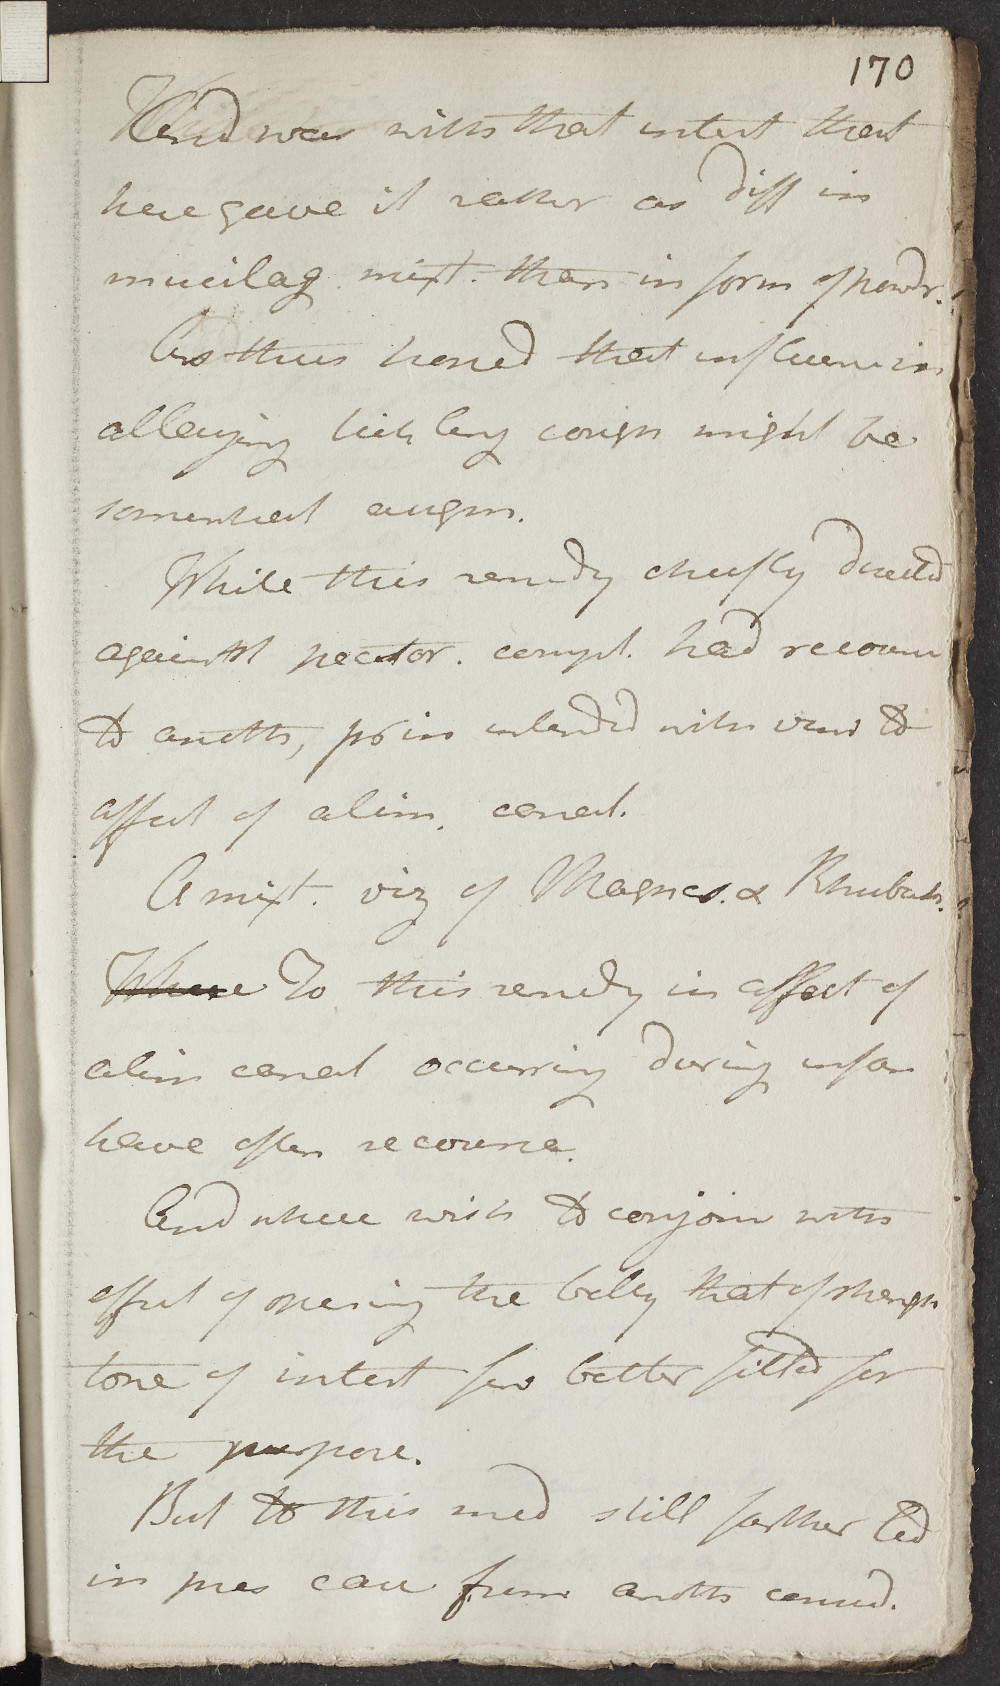 170
And was with that intent that
here gave it rather as diff in
mucilag. mixt. than in form of powdr.
As thus hoped that influence in
allaying tickling cough might be
somewhat augm.
While this remedy cheifly directed
against pector. compl. had recourse
to anothr, prin intended with view to
affect of alim. canal.
A mixt. viz of Magnes. & Rhubarb.
Where To this remedy in affect of
alim canal occurring during infan
have often recourse.
And where wish to conjoin with
effect of opening the belly that of strength
tone of intest few better fitted for
the purpose.
But to this med still farther led
in pres case from anothr consid.